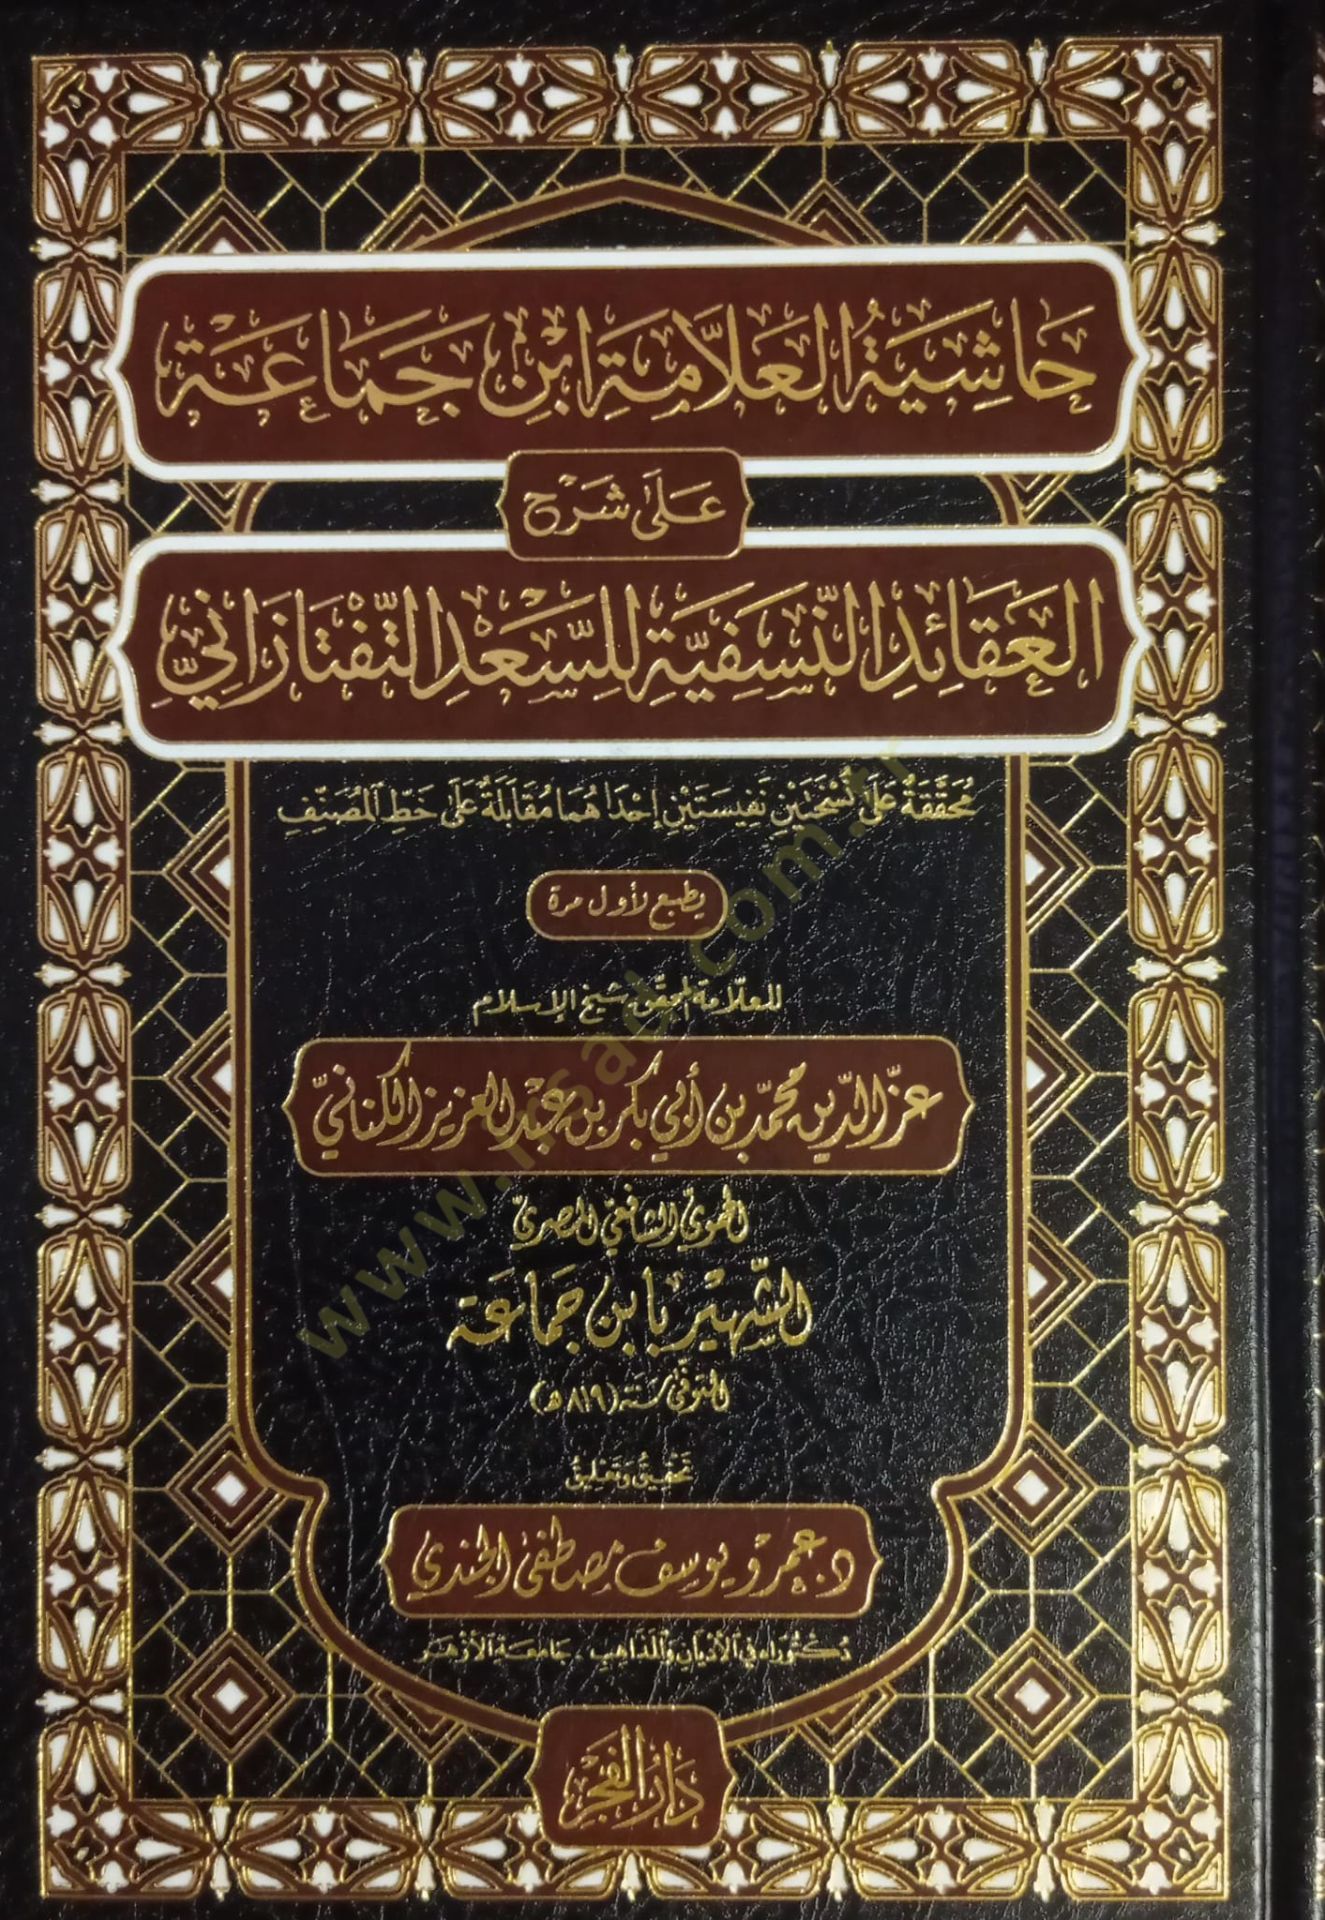 حَاشِيَةُ العَلَّامَةِ ابْنِ جَمَاعَةْ
عَلَى شَرْح
العَقَائِدِ النَّسَفِيَّةِ لِلسَّعْدِ التَّفْتَازَانِيِّ
مُحَقَّقَةٌ عَلَى نُسْخَتَيْنِ نَفِيسَتَيْنِ إِحْدَاهُمَا مُقَابَلَةٌ عَلَى خَطِّ المُصَنِّفِ
يطبع لأول مرة
للعلّامة المحقّق شيخ الإسلام
عزّ الدّين محمّد بن أبي بكر بن عبد العزيز الكنانيّ
الحمويّ الشافعيّ المصريّ
الشّهير بابن جَمَاعَة
المتوفّى سَنَة (٨١٩هـ)
تحقيقُ وتعليقُ
د. عمرو يوسف مصطفى الجندي
دُكْتُورَاه فِي الأَدْيَانِ وَالمَذَاهِبِ ، جَامِعَة الأَزْهَر
دَارُ الفَجْرِ
www.irsad.com.tr